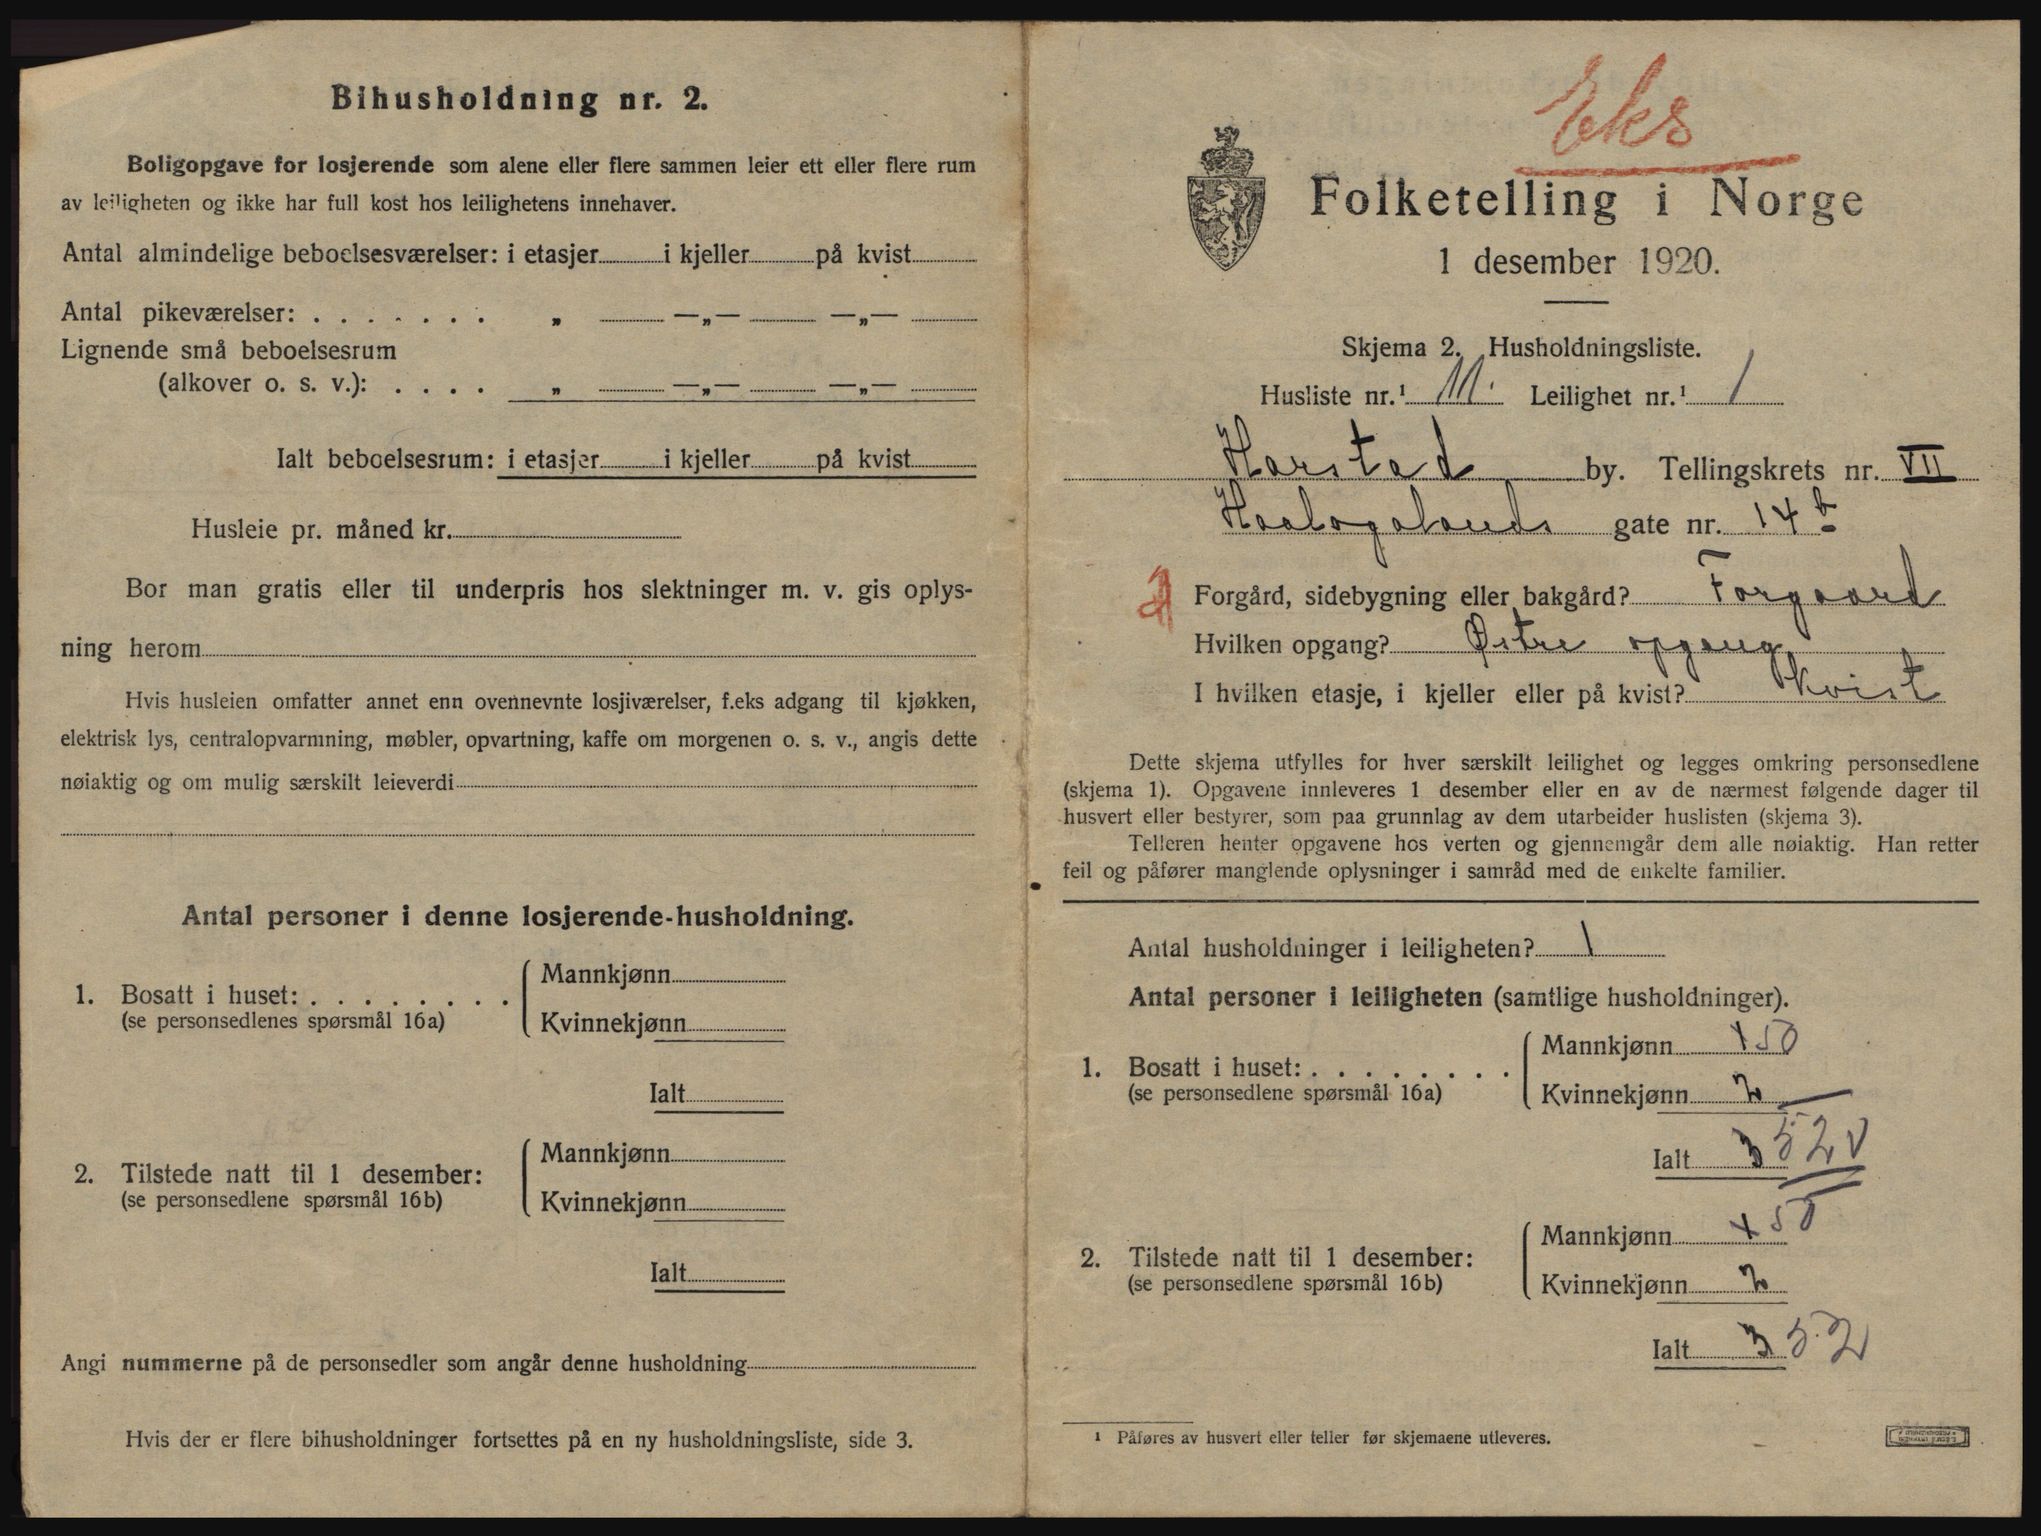 Bihusholdning nr. 2.
Boligopgave for losjerende som alene eller flere sammen leier ett eller flere rum
av leiligheten og ikke har full kost hos leilighetens innehaver.
Antal almindelige beboelsesværelser: i etasjer i kjeller på kvist
Antal pikeværelser: . . . . . . . „ —„— —„—
Lignende små beboelsesrum
(alkover o. s. v.): . . . . „ —„— —„—
Ialt beboelsesrum: i etasjer i kjeller på kvist
Husleie pr. måned kr.
Bor man gratis eller til underpris hos slektninger m. v. gis oplys-
ning herom
Hvis husleien omfatter annet enn ovennevnte losjiværelser, f.eks adgang til kjøkken,
elektrisk lys, centralopvarmning, møbler, opvartning, kaffe om morgenen o. s. v., angis dette
nøiaktig og om mulig særskilt leieverdi
Antal personer i denne losjerende-husholdning.
1. Bosatt i huset: . . . . . . . .
(se personsedlenes spørsmål 16a)
Mannkjønn
Kvinnekjønn
Ialt
2. Tilstede natt til 1 desember:
(se personsedlene spørsmål 16b)
Mannkjønn
Kvinnekjønn
Ialt
Angi nummerne på de personsedler som angår denne husholdning
Hvis der er flere bihusholdninger fortsettes på en ny husholdningsliste, side 3.
Eks
Folketelling i Norge
1 desember 1920.
Skjema 2. Husholdningsliste.
Husliste nr.¹ Leilighet nr.¹ 1
Harstad by. Tellingskrets nr. VII
Haalogalands gate nr. 14 b
Forgård, sidebygning eller bakgård? Forgaard
Hvilken opgang? Østre opgang
I hvilken etasje, i kjeller eller på kvist? Kvist
Dette skjema utfylles for hver særskilt leilighet og legges omkring personsedlene
(skjema 1). Opgavene innleveres 1 desember eller en av de nærmest følgende dager til
husvert eller bestyrer, som paa grunnlag av dem utarbeider huslisten (skjema 3).
Telleren henter opgavene hos verten og gjennemgår dem alle nøiaktig. Han retter
feil og påfører manglende oplysninger i samråd med de enkelte familier.
Antal husholdninger i leiligheten? 1
Antal personer i leiligheten (samtlige husholdninger).
1. Bosatt i huset: . . . . . . . .
(se personsedlene spørsmål 16a)
Mannkjønn 50
Kvinnekjønn 2
Ialt 3 52
2. Tilstede natt til 1 desember:
(se personsedlene spørsmål 16b)
Mannkjønn 50
Kvinnekjønn 2
Ialt 3 52
¹ Påføres av husvert eller teller før skjemaene utleveres.